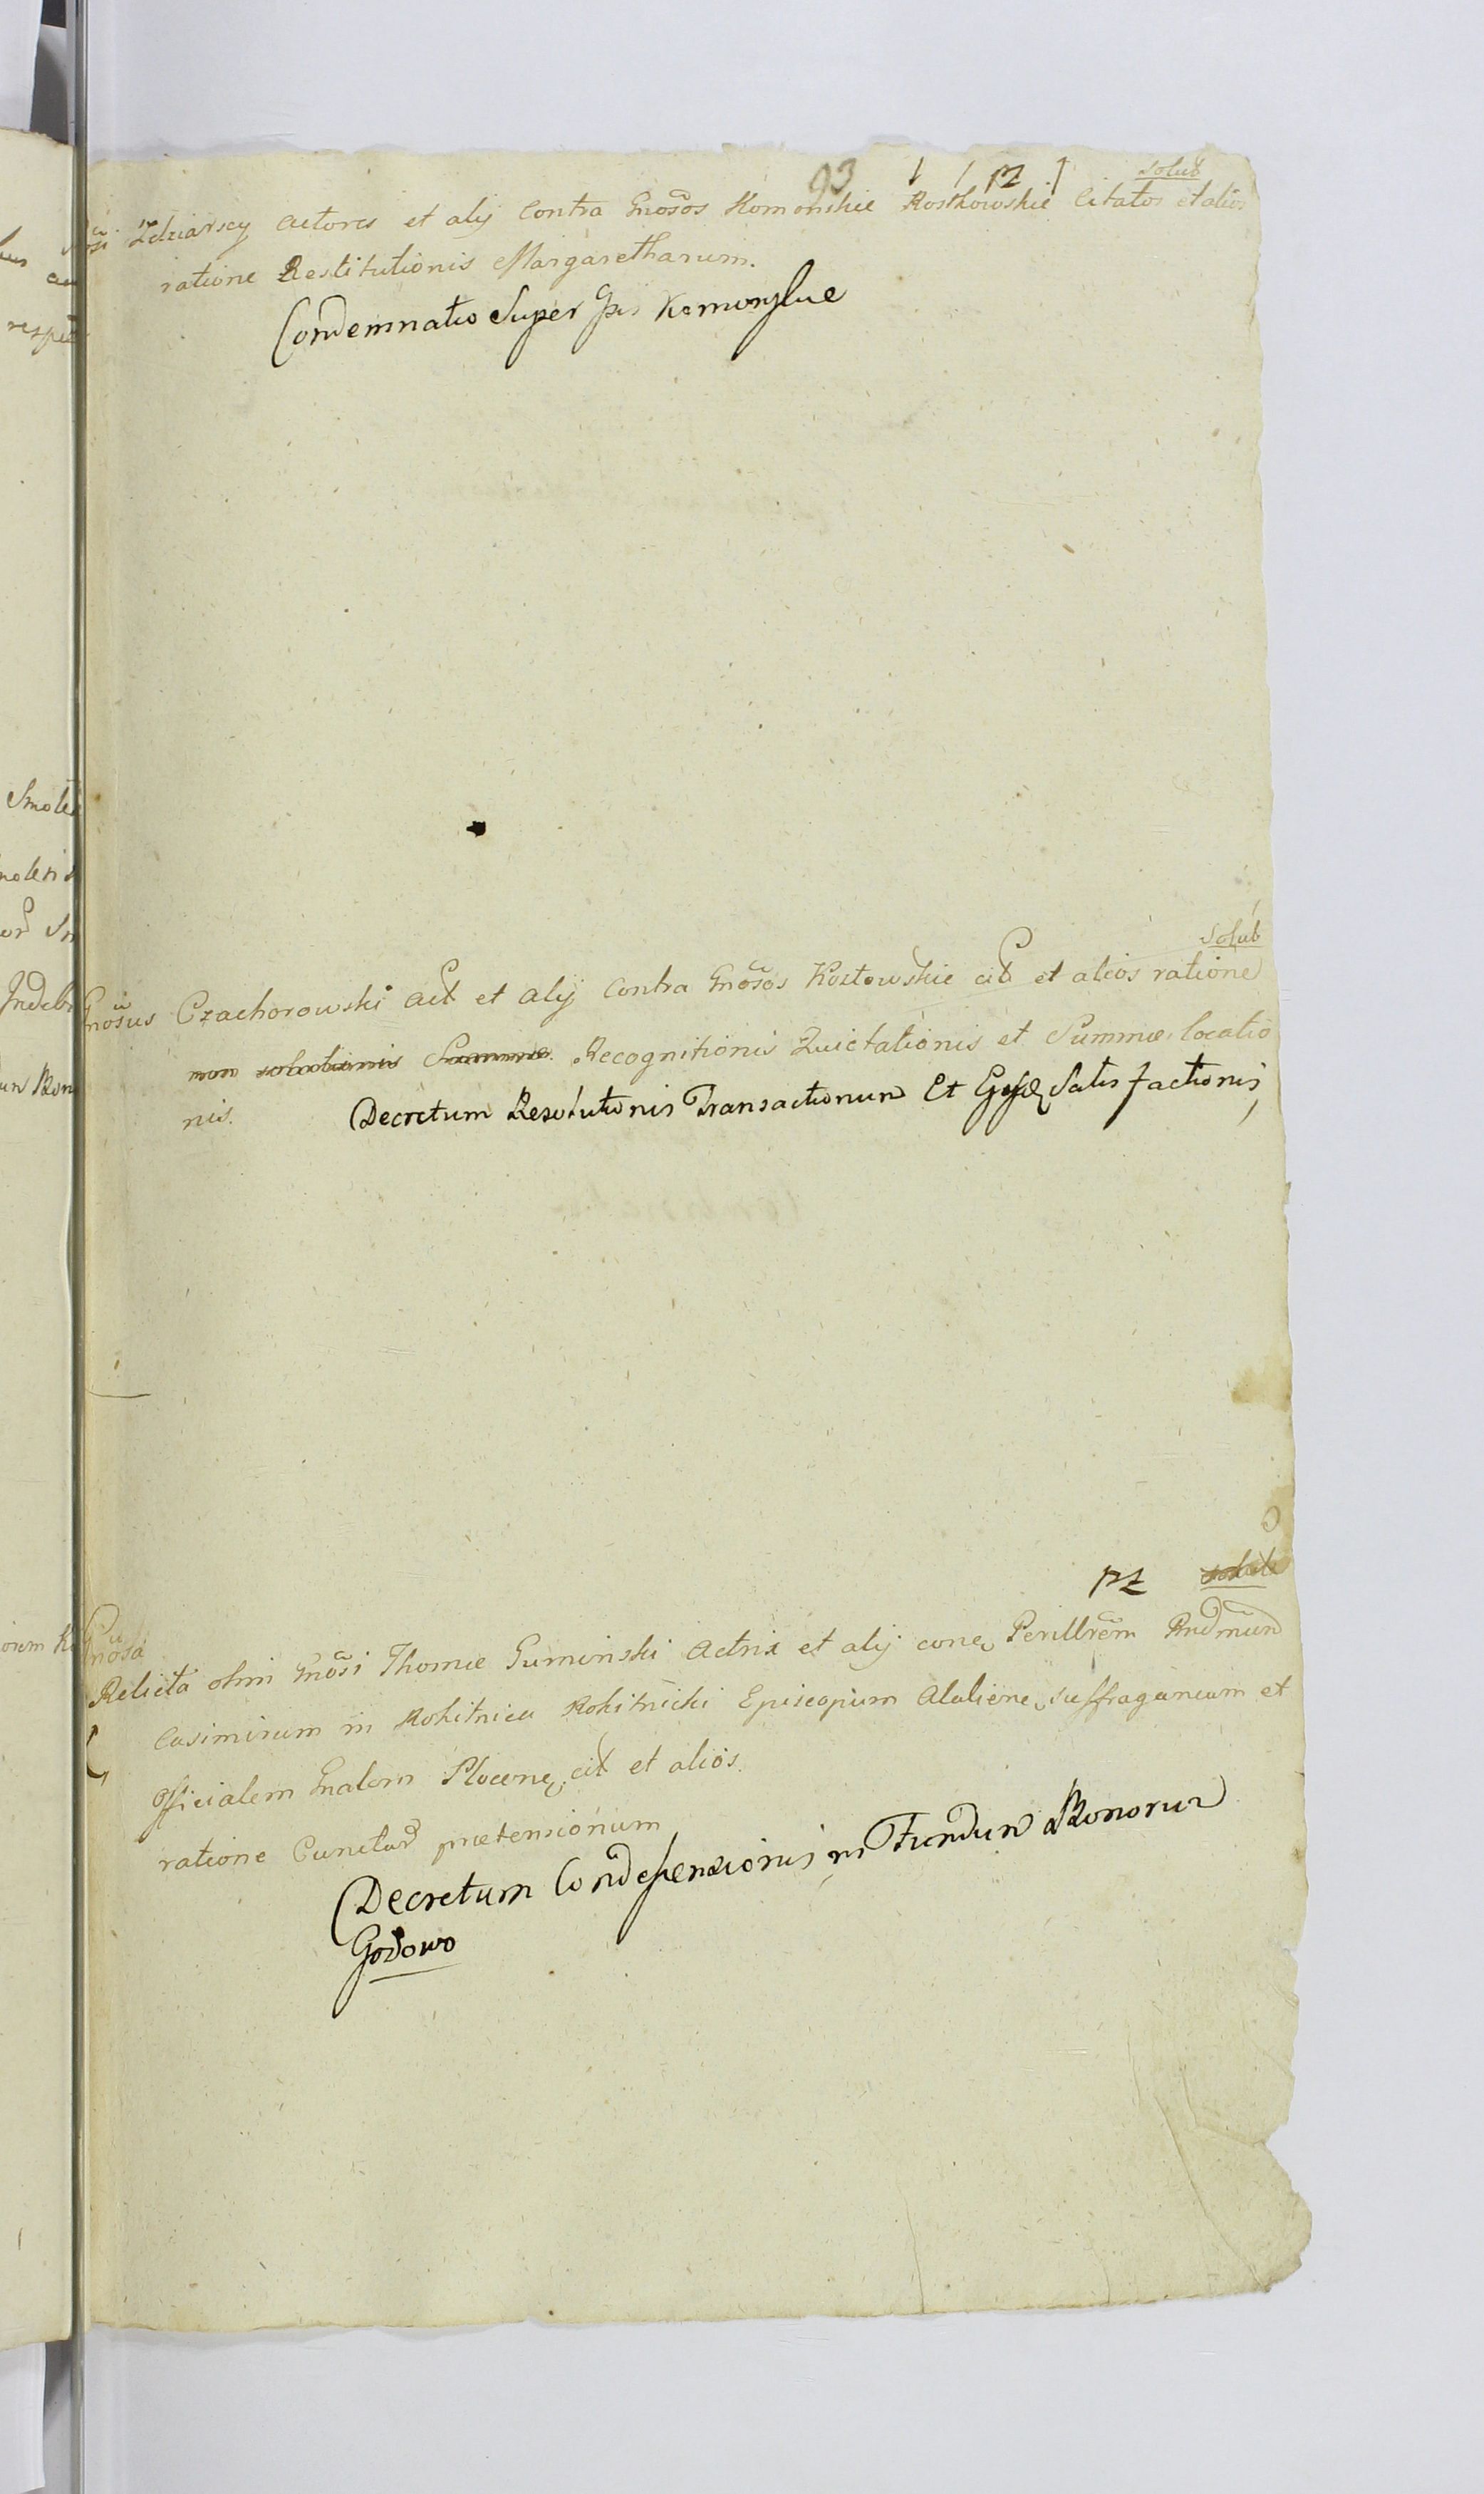 93 pz solut
Zdziarscy Actores et alij Contra Gnosos Komorskie Rostkowskie Citatos et alios
ratione Restitutionis Margaretharum.
Condemnatio Super
solut
Gnosus Czachorowski Act et alij Contra Gnosos Kozłowskie cit et alios ratione
non solutionis Summæ Recognitionis Quietationis et Summæ locatio
nis.
Decretum Resolutionis Transactionum Et Satisfactionis
pz solut
Gnosa
Relicta olim Gnosi Thomæ Guminski Actrix et alij conẽ Perillrem Rndmum
Casimirum in Rokitnica Rokitnicki Episcopum suffraganeum et
Officialem Gnalem Plocenẽ cit et alios.
ratione Cunctar prætensionum
Decretum Condescensionis in Fundum Bonorum
Godowo